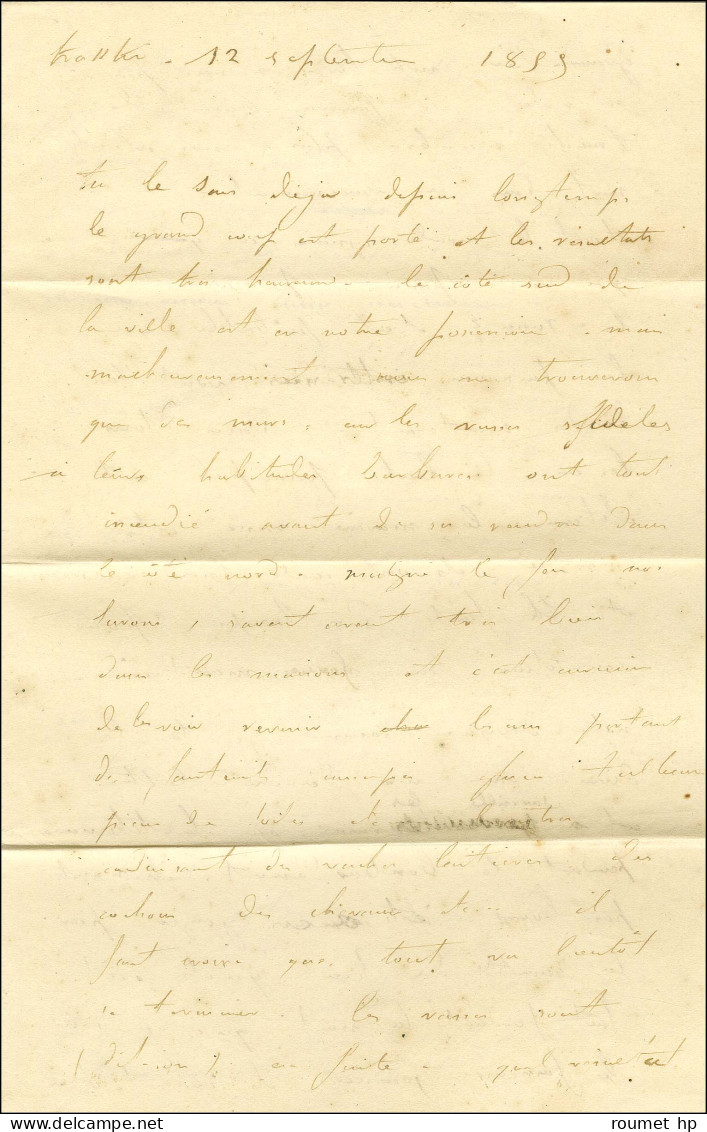 12 septembre 1855
tu le sais déja depuis longtemps
le grand coup est porté et les résultats
sont très heureux. le côté sud de
la ville est en notre possession. mais
malheureusement nous ne trouverons
que des murs. car les russes fidèles
à leurs habitudes barbares ont tout
incendié avant de se rendre dans
le côté nord. malgré le feu nos
zuaves, savent avant très bien
dans les maisons et c'est curieux
de les voir revenir les uns portant
des fauteuils canapés glaces tableaux
pièces de toiles et les autres
conduisant des vaches laitières. des
cochons des chevaux etc - il
faut croire que tout va bientôt
se terminer. les russes sont
(dit-on) en fuite. quel résultat
roumet hp